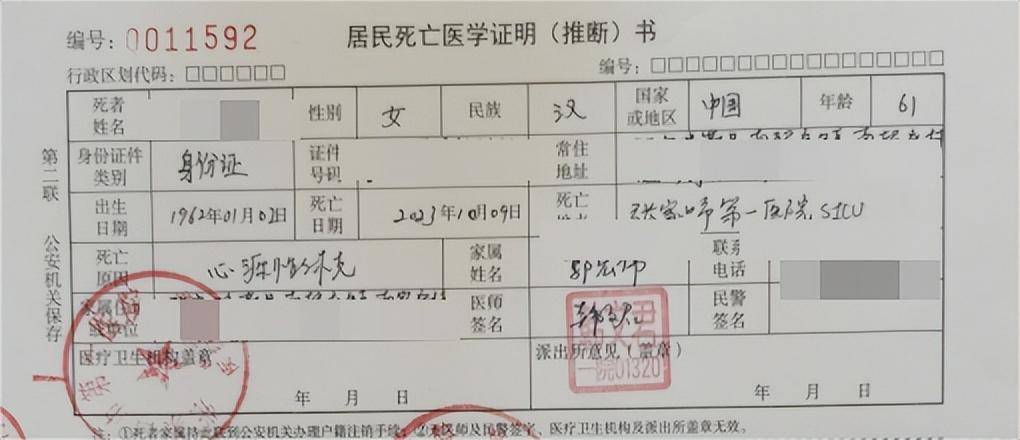 居民死亡医学证明（推断）书
编号：0011592
行政区划代码：□□□□□□
编号：□□□□□□□□□□□□□□□□□
死者姓名 性别 女 民族 汉 国家或地区 中国 年龄 61
身份证件类别 身份证 证件号码 常住地址
出生日期 1962年01月02日 死亡日期 2023年10月09日 死亡 第一医院SICU
死亡原因 心源性休克 家属姓名 联系电话
医师签名 民警签名
医疗卫生机构盖章 派出所意见（盖章）
年 月 日 年 月 日
第二联 公安机关保存
文君
一院01320
注：①死者家属持二联到公安机关办理户籍注销手续；②无医师及民警签字、医疗卫生机构及派出所盖章无效。